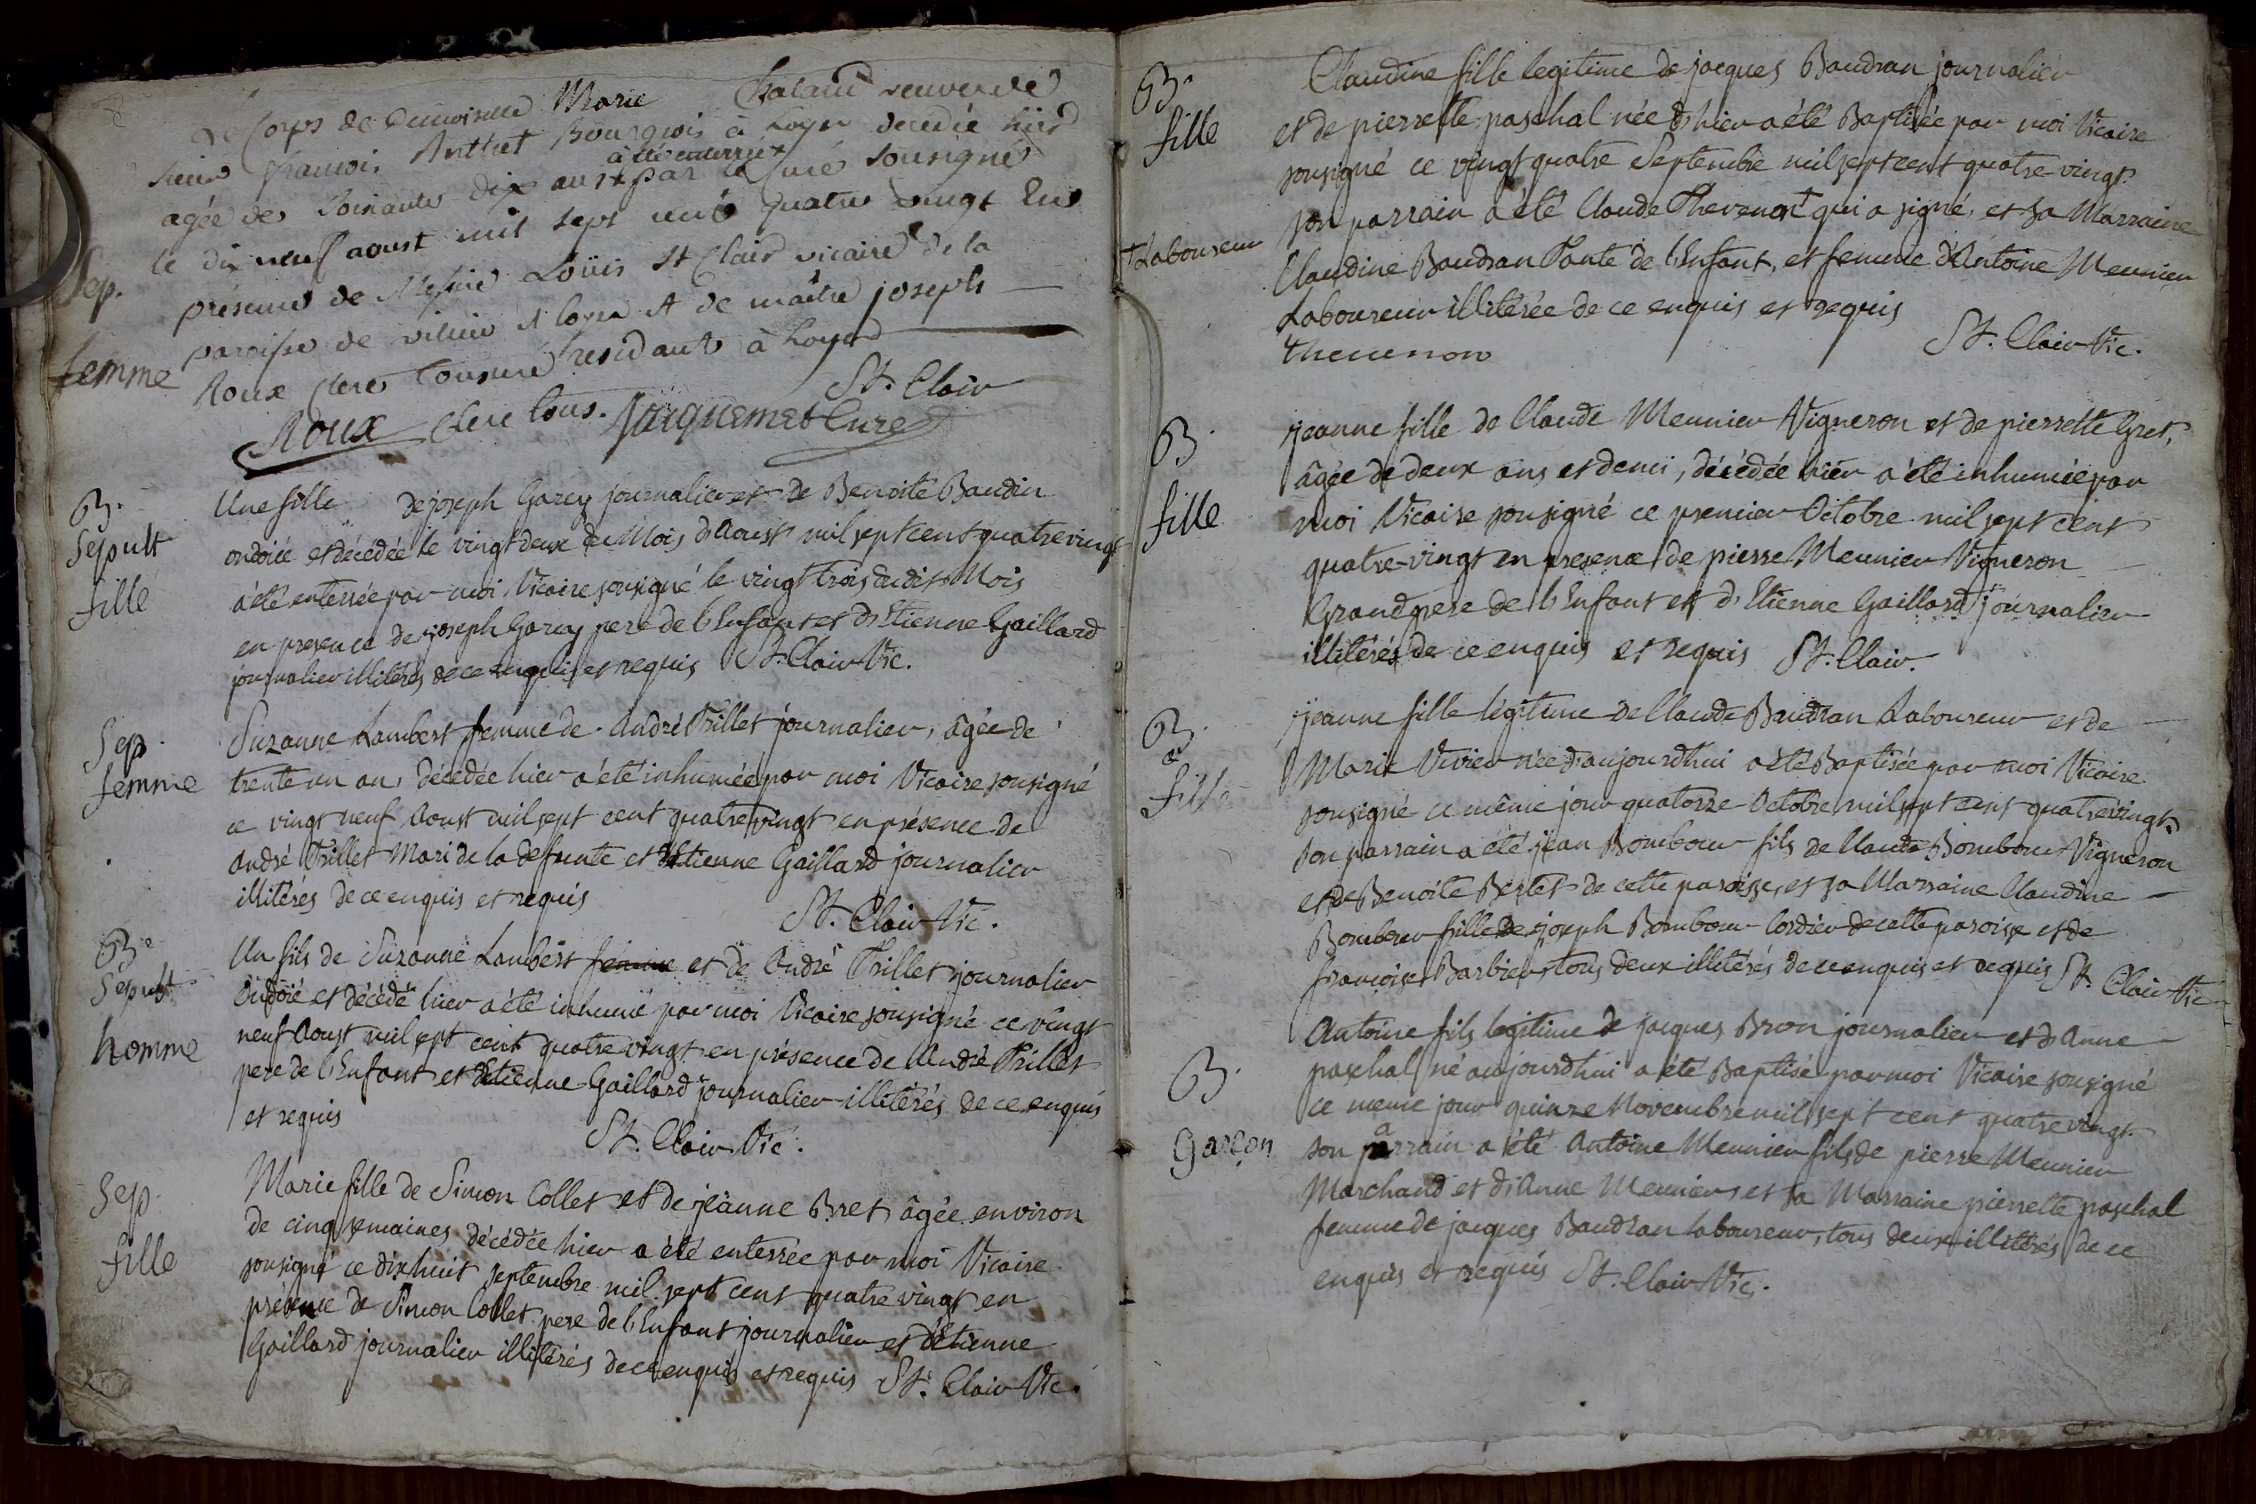 Le Corps de demoiselle Marie Chaland veuve de
sieur francois Anthet Bourgeois à Loyer décédée hier
agée de soixante dix ans a été enterrée par le curé sousigné
le dix neuf aoust mil sept cent quatre vingt En
Sep.
présence de Messire Loüis St Clair vicaire de la
paroisse de vilieu et loyer et de maître joseph
femme
Roux clerc tonsuré residant à Loyer
St. Clair
Roux clerc tons. Jacquemet Curé
B.
Sepult
fille
Une fille de joseph Garcy journalier et de Benoite Baudin
ondoiée et décédée le vingt deux du Mois d'Aoust mil sept cent quatre vingt
a été enterrée par moi Vicaire sousigné le vingt trois dudit Mois
en presence de joseph Garcy pere de l'Enfant et d'Etienne Gaillard
journalier illitérés de ce enquis et requis St. Clair Vic.
Sep
femme
Suzanne Lambert femme de André Trillet journalier, âgée de
trente un an, décédée hier a été inhumée par moi Vicaire sousigné
ce vingt neuf Aoust mil sept cent quatre vingt en présence de
André Trillet Mari de la defunte et d'Etienne Gaillard journalier
illitérés de ce enquis et requis
St. Clair Vic.
B.
Sepult
homme
Un fils de Suzanne Lambert femme et de André Trillet journalier
Ondoié et décédé hier a été inhumé par moi Vicaire sousigné ce vingt
neuf Aoust mil sept cent quatre vingt en présence de André Trillet
pere de l'Enfant et d'Etienne Gaillard journalier illitérés de ce enquis
et requis
St. Clair Vic.
Sep.
fille
Marie fille de Simon Collet et de jeanne Bret âgée environ
de cinq semaines décédée hier a été enterrée par moi Vicaire
sousigné ce dix huit septembre mil sept cent quatre vingt en
présence de Simon Collet pere de l'Enfant journalier et d'Etienne
Gaillard journalier illitérés de ce enquis et requis St. Clair Vic.
B.
fille
Claudine fille legitime de jacques Baudran journalier
et de pierrette paschal née d'hier a été Baptisée par moi Vicaire
sousigné ce vingt quatre Septembre mil sept cent quatre-vingt.
son parrain a été Claude Thevenon + qui a signé, et sa Marraine
+ Laboureur
Claudine Baudran Tante de l'Enfant, et femme d'Antoine Meunier
Laboureur illitérée de ce enquis et requis
St. Clair Vic.
thevenon
B.
fille
jeanne fille de Claude Meunier Vigneron et de pierrette Gret,
âgée de deux ans et demi, décédée hier a été inhumée par
moi Vicaire sousigné ce premier Octobre mil sept cent
quatre-vingt en presence de pierre Meunier Vigneron
Grand pere de l'Enfant et d'Etienne Gaillard journalier
illitérés de ce enquis et requis St. Clair.
B.
a
fille
jeanne fille légitime de Claude Baudran Laboureur et de
Marie Vivier née d'aujourdhui a été Baptisée par moi Vicaire
sousigné ce même jour quatorze Octobre mil sept cent quatre vingt.
son parrain a été jean Bombour fils de Claude Bombour Vigneron
et de Benoite Berlet de cette paroisse, et sa Marraine Claudine
Bombour fille de joseph Bombour Cordier de cette paroisse et de
françoise Barbier, tous deux illitérés de ce enquis et requis St. Clair Vic
B.
Garçon
Antoine fils legitime de jacques Bron journalier et d'Anne
paschal né aujourdhui a été Baptisé par moi Vicaire sousigné
ce meme jour quinze Novembre mil sept cent quatre vingt.
son parrain a été Antoine Meunier fils de pierre Meunier
Marchand et d'Anne Meunier, et sa Marraine pierrette paschal
femme de jacques Baudran laboureur, tous deux illitérés de ce
enquis et requis St. Clair Vic.